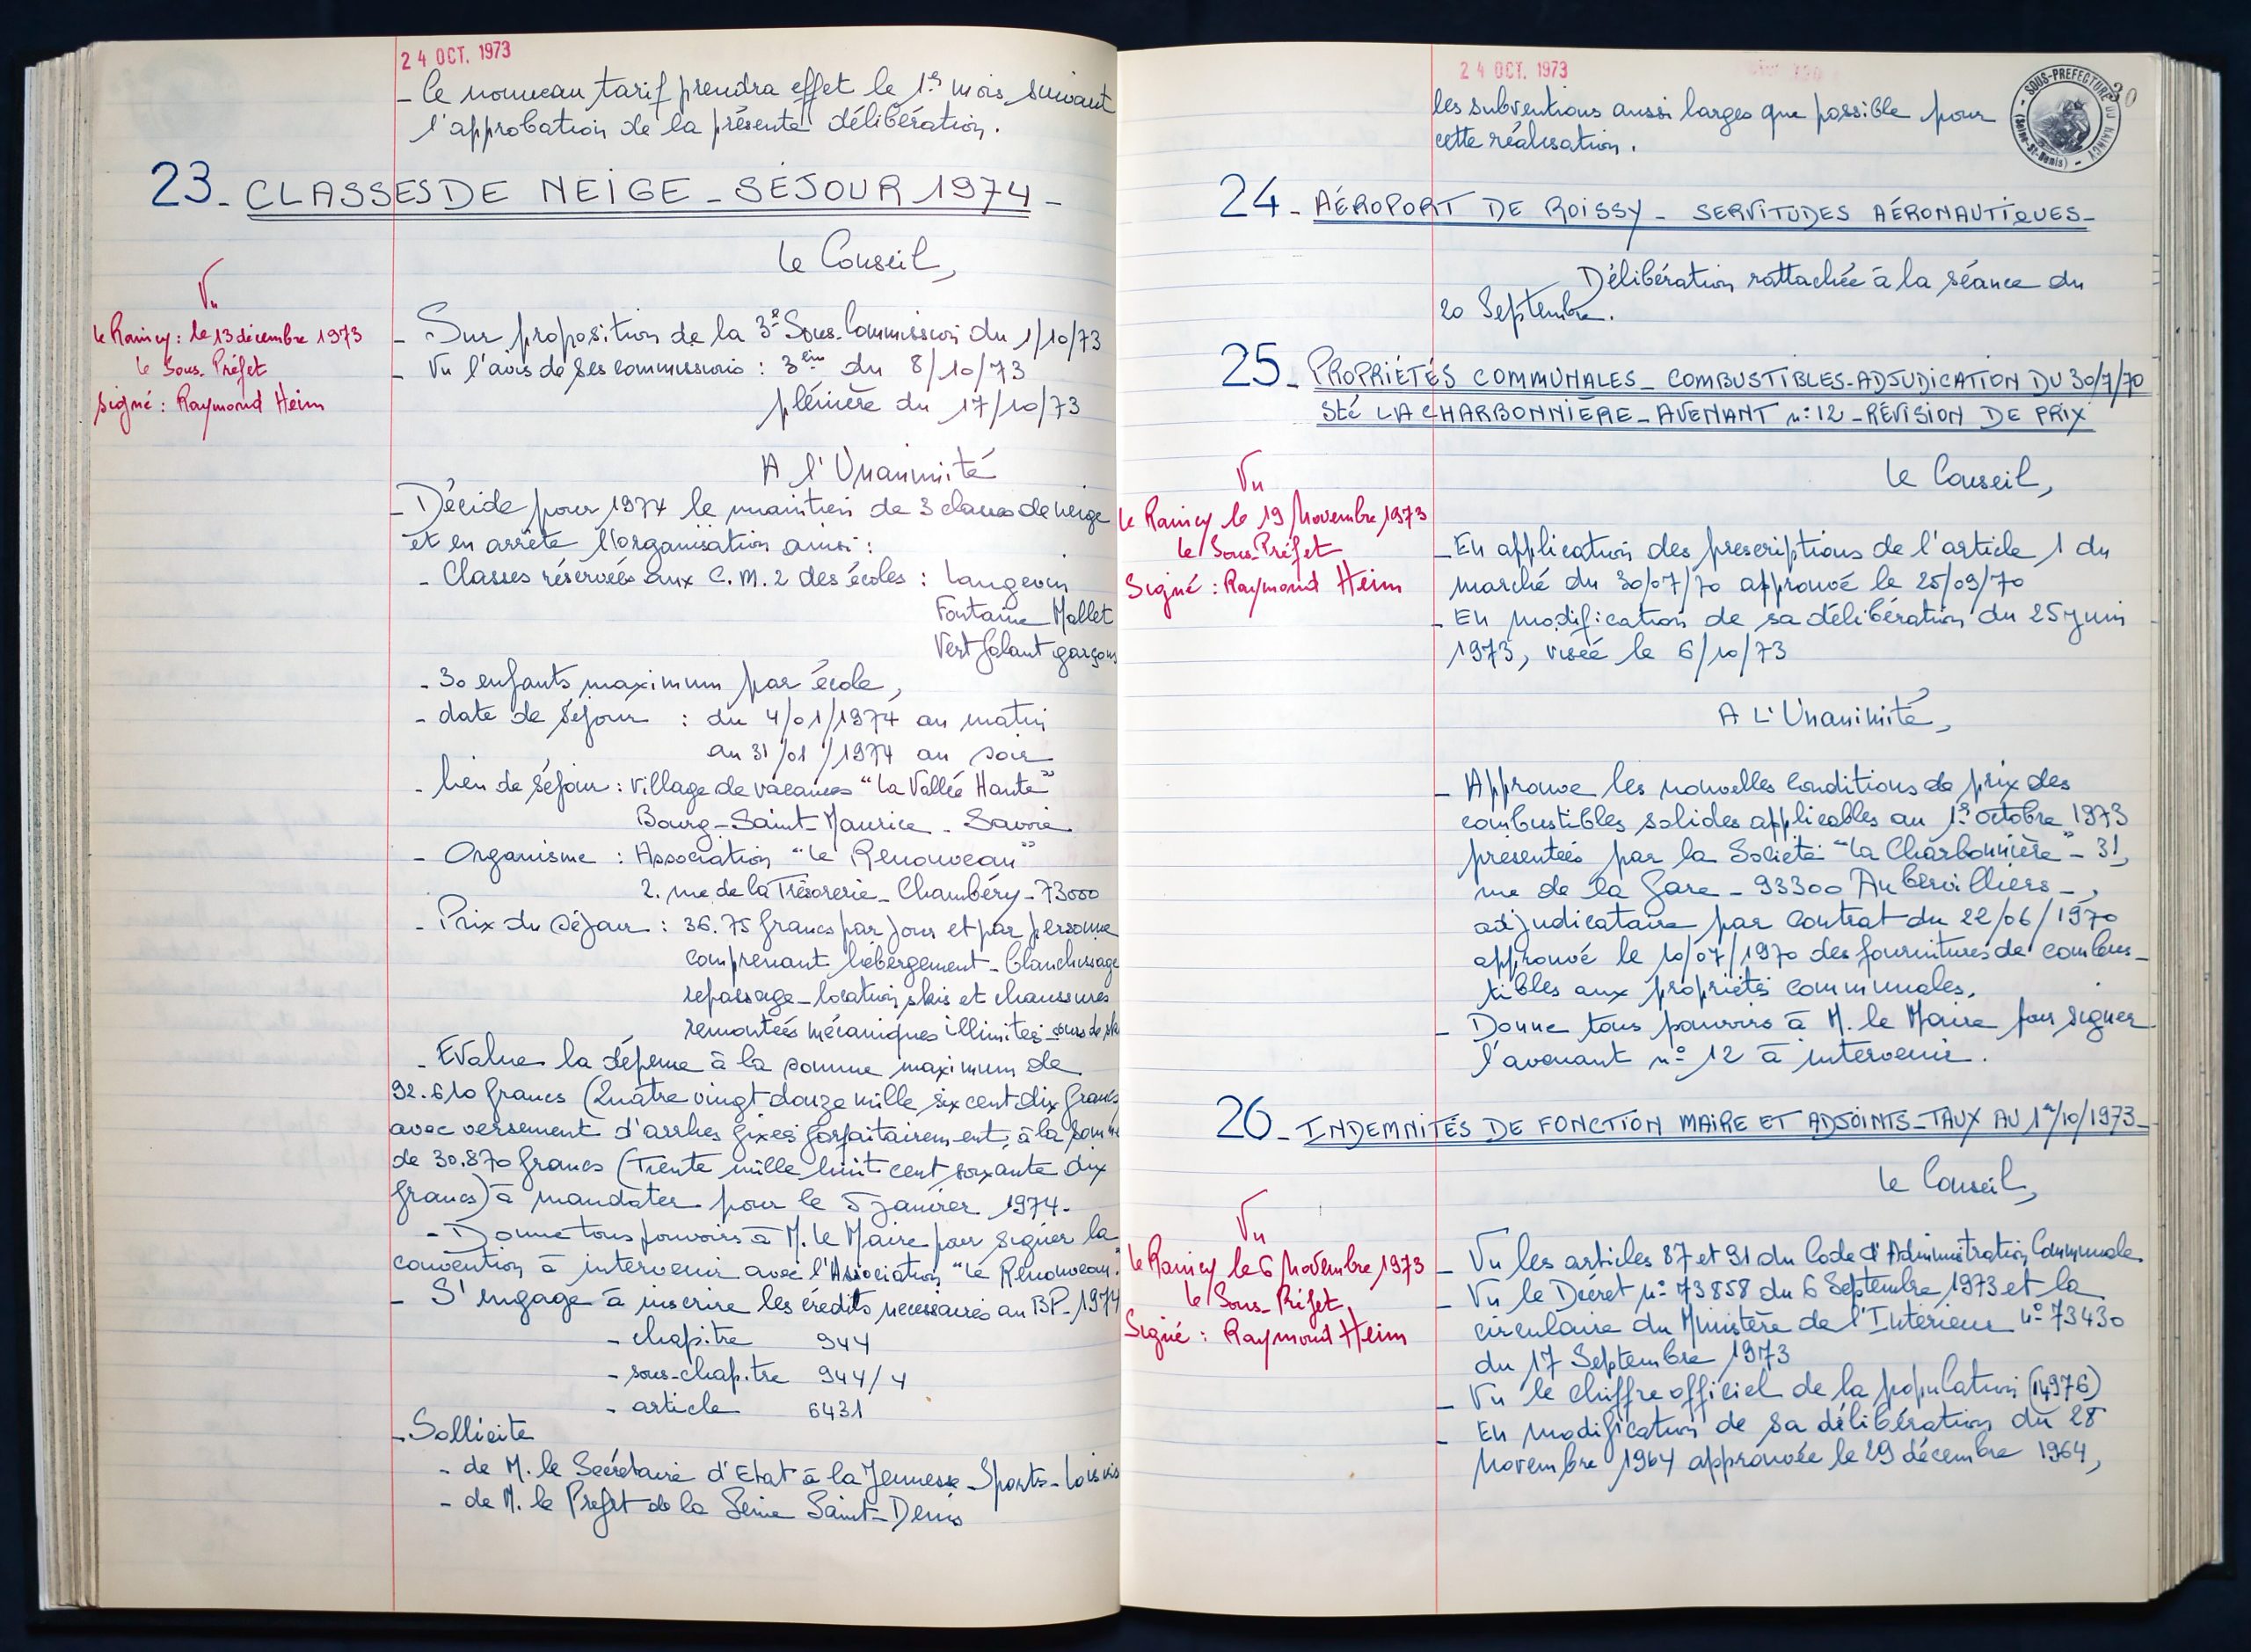 24 OCT. 1973
- Ce nouveau tarif prendra effet le 1er mois suivant
l'approbation de la présente délibération.
23_ CLASSES DE NEIGE _ SÉJOUR 1974 _
Le Conseil,
Vu
le Raincy : le 13 décembre 1973
le Sous-Préfet
signé : Raymond Heim
- Sur proposition de la 3e Sous-Commission du 1/10/73
- Vu l'avis de ses commissions : 3ème du 8/10/73
plénière du 17/10/73
A l'Unanimité
- Décide pour 1974 le maintien de 3 classes de neige
et en arrête l'organisation ainsi :
- Classes réservées aux C.M.2 des écoles : Langevin
Fontaine Mallet
Vert Galant garçons
- 30 enfants maximum par école,
- date de séjour : du 4/01/1974 au matin
au 31/01/1974 au soir
- lieu de séjour : village de vacances "La Vallée Haute"
Bourg-Saint-Maurice - Savoie
- Organisme : Association "Le Renouveau"
2. rue de la Trésorerie - Chambéry - 73000
- Prix du séjour : 36.75 francs par jour et par personne
comprenant hébergement - blanchissage
repassage - location skis et chaussures
remontées mécaniques illimités - cours de ski
- Evalue la dépense à la somme maximum de
92.610 francs (Quatre vingt douze mille six cent dix francs
avec versement d'arrhes fixées forfaitairement à la somme
de 30.870 francs (Trente mille huit cent soixante dix
francs) à mandater pour le 5 janvier 1974.
- Donne tous pouvoirs à M. le Maire pour signer la
convention à intervenir avec l'Association "Le Renouveau"
- S'engage à inscrire les crédits nécessaires au BP - 1974
- chapitre 944
- sous-chapitre 944/4
- article 6431
- Sollicite
- de M. le Secrétaire d'Etat à la Jeunesse - Sports - Loisirs
- de M. le Préfet de la Seine Saint-Denis
24 OCT. 1973
SOUS-PREFECTURE DU RAINCY
(Seine-St-Denis)
30
les subventions aussi larges que possible pour
cette réalisation.
24_ AÉROPORT DE ROISSY _ SERVITUDES AÉRONAUTIQUES_
Délibération rattachée à la séance du
20 Septembre.
25_ PROPRIÉTÉS COMMUNALES_ COMBUSTIBLES-ADJUDICATION DU 30/7/70
Sté LA CHARBONNIÈRE_AVENANT n°12_RÉVISION DE PRIX
Le Conseil,
Vu
le Raincy le 19 Novembre 1973
le Sous-Préfet
Signé : Raymond Heim
- En application des prescriptions de l'article 1 du
marché du 30/07/70 approuvé le 25/09/70
- En modification de sa délibération du 25 juin
1973, visée le 6/10/73
A L'Unanimité,
- Approuve les nouvelles conditions de prix des
combustibles solides applicables au 1er Octobre 1973
présentées par la Société "La Charbonnière" - 31,
rue de la Gare - 93300 Aubervilliers -,
adjudicataire par contrat du 22/06/1970
approuvé le 10/07/1970 des fournitures de combus_
tibles aux propriétés communales.
- Donne tous pouvoirs à M. le Maire pour signer
l'avenant n° 12 à intervenir.
26_ INDEMNITÉS DE FONCTION MAIRE ET ADJOINTS_TAUX AU 1er/10/1973_
Le Conseil,
Vu
le Raincy le 6 Novembre 1973
le Sous-Préfet
Signé : Raymond Heim
- Vu les articles 87 et 91 du Code d'Administration Communale
- Vu le Décret n° 73858 du 6 Septembre 1973 et la
circulaire du Ministère de l'Intérieur n° 73430
du 17 Septembre 1973
- Vu le chiffre officiel de la population (14976)
- En modification de sa délibération du 28
Novembre 1964 approuvée le 29 décembre 1964,